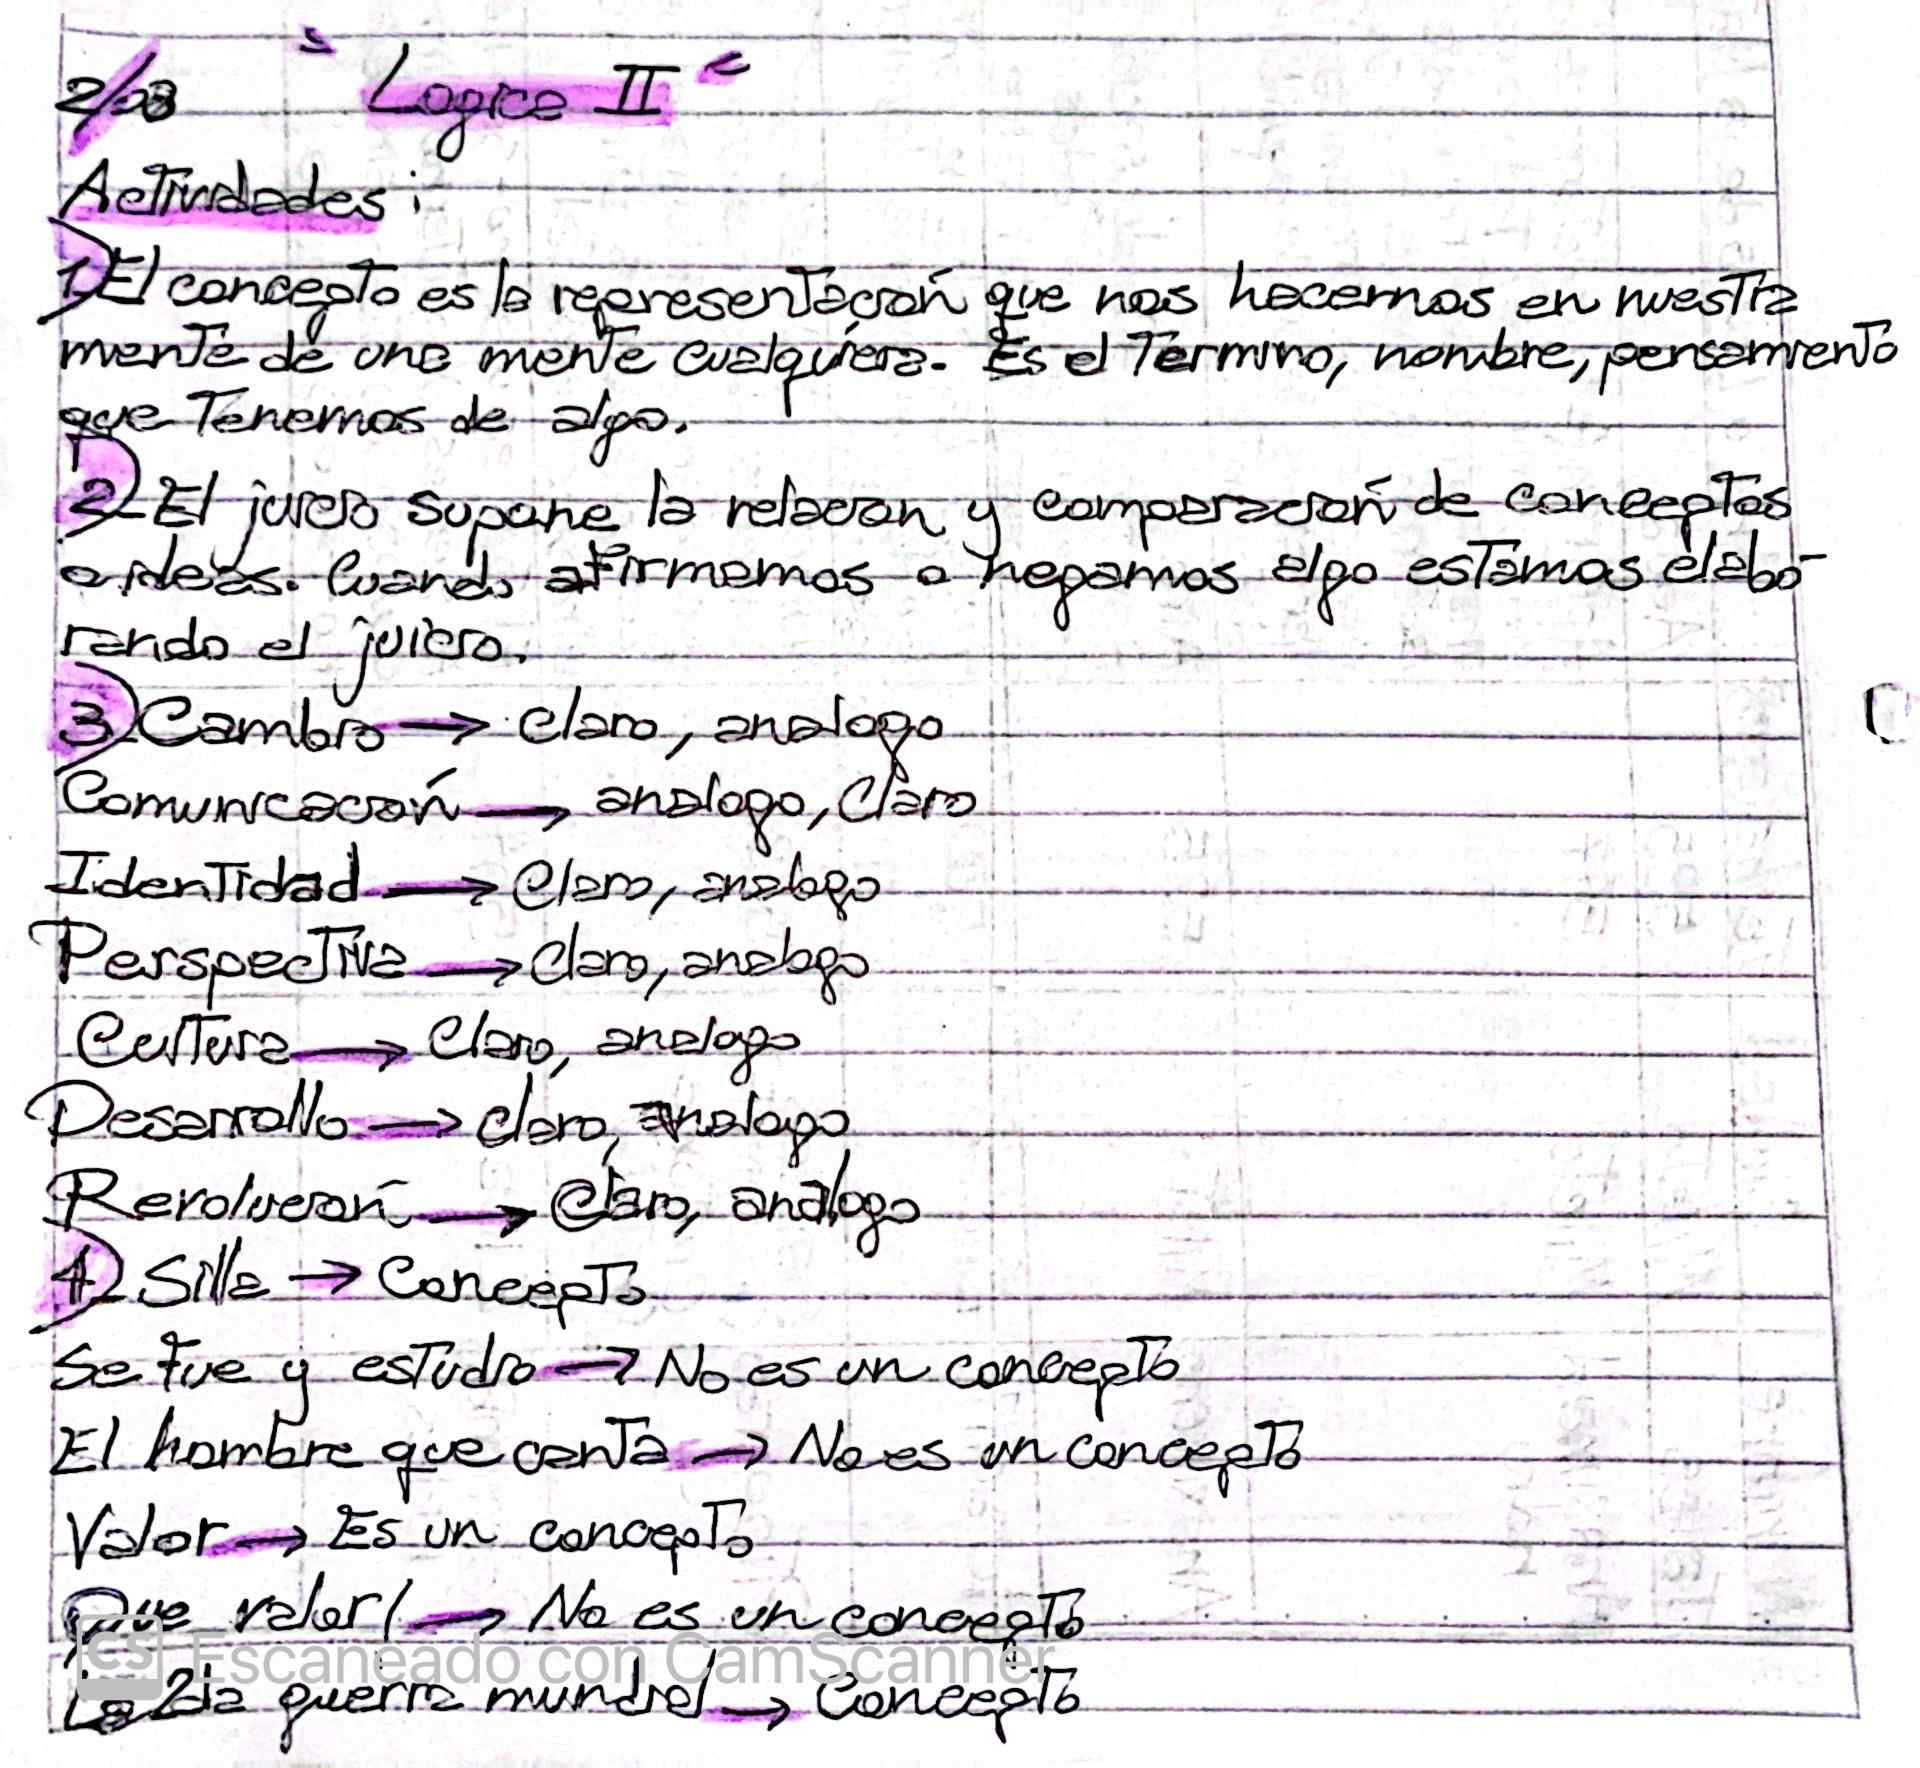 2/08 "Logica II"
Actividades:
1) El concepto es la representación que nos hacemos en nuestra
mente de una mente cualquiera. Es el Termino, nombre, pensamiento
que Tenemos de algo.
2) El juicio supone la relacion y comparación de conceptos
o ideas. Cuando afirmamos o negamos algo estamos elabo-
rando el juicio.
3) Cambio → Claro, analogo
Comunicación → analogo, Claro
Identidad → Claro, analogo
Perspectiva → Claro, analogo
Cultura → Claro, analogo
Desarrollo → claro, analogo
Revolución → Claro, analogo
4) Silla → Concepto
Se fue y estudio → No es un concepto
El hombre que canta → No es un concepto
Valor → Es un concepto
Que valor! → No es un concepto
CS Escaneado con CamScanner
La 2da guerra mundial → Concepto